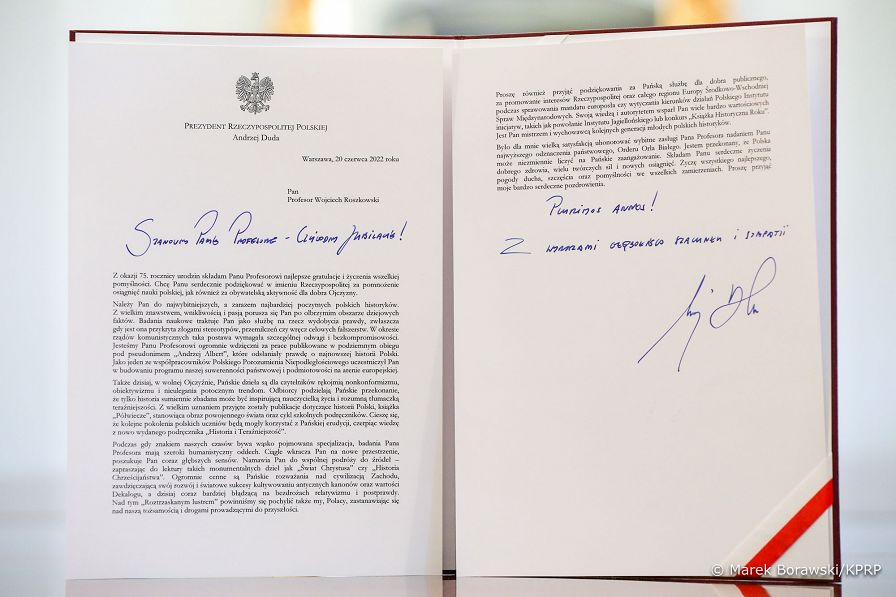 PREZYDENT RZECZYPOSPOLITEJ POLSKIEJ
Andrzej Duda
Warszawa, 20 czerwca 2022 roku
Pan
Profesor Wojciech Roszkowski
Szanowny Panie Profesorze – Czcigodny Jubilacie!
Z okazji 75. rocznicy urodzin składam Panu Profesorowi najlepsze gratulacje i życzenia wszelkiej
pomyślności. Chcę Panu serdecznie podziękować w imieniu Rzeczypospolitej za pomnożenie
osiągnięć nauki polskiej, jak również za obywatelską aktywność dla dobra Ojczyzny.
Należy Pan do najwybitniejszych, a zarazem najbardziej poczytnych polskich historyków.
Z wielkim znawstwem, wnikliwością i pasją porusza się Pan po olbrzymim obszarze dziejowych
faktów. Badania naukowe traktuje Pan jako służbę na rzecz wydobycia prawdy, zwłaszcza
gdy jest ona przykryta złogami stereotypów, przemilczeń czy wręcz celowych fałszerstw. W okresie
rządów komunistycznych taka postawa wymagała szczególnej odwagi i bezkompromisowości.
Jesteśmy Panu Profesorowi ogromnie wdzięczni za prace publikowane w podziemnym obiegu
pod pseudonimem „Andrzej Albert”, które odsłaniały prawdę o najnowszej historii Polski.
Jako jeden ze współpracowników Polskiego Porozumienia Niepodległościowego uczestniczył Pan
w budowaniu programu naszej suwerenności państwowej i podmiotowości na arenie europejskiej.
Także dzisiaj, w wolnej Ojczyźnie, Pańskie dzieła są dla czytelników rękojmią nonkonformizmu,
obiektywizmu i nieulegania potocznym trendom. Odbiorcy podzielają Pańskie przekonanie,
że tylko historia sumiennie zbadana może być inspirującą nauczycielką życia i rozumną tłumaczką
teraźniejszości. Z wielkim uznaniem przyjęte zostały publikacje dotyczące historii Polski, książka
„Półwiecze”, stanowiąca obraz powojennego świata oraz cykl szkolnych podręczników. Cieszę się,
że kolejne pokolenia polskich uczniów będą mogły korzystać z Pańskiej erudycji, czerpiąc wiedzę
z nowo wydanego podręcznika „Historia i Teraźniejszość”.
Podczas gdy znakiem naszych czasów bywa wąsko pojmowana specjalizacja, badania Pana
Profesora mają szeroki humanistyczny oddech. Ciągle wkracza Pan na nowe przestrzenie,
poszukuje Pan coraz głębszych sensów. Namawia Pan do wspólnej podróży do źródeł –
zapraszając do lektury takich monumentalnych dzieł jak „Świat Chrystusa” czy „Historia
Chrześcijaństwa”. Ogromnie cenne są Pańskie rozważania nad cywilizacją Zachodu,
zawdzięczającą swój rozwój i światowe sukcesy kultywowaniu antycznych kanonów oraz wartości
Dekalogu, a dzisiaj coraz bardziej błądzącą na bezdrożach relatywizmu i postprawdy.
Nad tym „Roztrzaskanym lustrem” powinniśmy się pochylić także my, Polacy, zastanawiając się
nad naszą tożsamością i drogami prowadzącymi do przyszłości.
Proszę również przyjąć podziękowania za Pańską służbę dla dobra publicznego,
za promowanie interesów Rzeczypospolitej oraz całego regionu Europy Środkowo-Wschodniej
podczas sprawowania mandatu europosła czy wytyczania kierunków działań Polskiego Instytutu
Spraw Międzynarodowych. Swoją wiedzą i autorytetem wsparł Pan wiele bardzo wartościowych
inicjatyw, takich jak powołanie Instytutu Jagiellońskiego lub konkurs „Książka Historyczna Roku”.
Jest Pan mistrzem i wychowawcą kolejnych generacji młodych polskich historyków.
Było dla mnie wielką satysfakcją uhonorować wybitne zasługi Pana Profesora nadaniem Panu
najwyższego odznaczenia państwowego, Orderu Orła Białego. Jestem przekonany, że Polska
może niezmiennie liczyć na Pańskie zaangażowanie. Składam Panu serdeczne życzenia
dobrego zdrowia, wielu twórczych sił i nowych osiągnięć. Życzę wszystkiego najlepszego,
pogody ducha, szczęścia oraz pomyślności we wszelkich zamierzeniach. Proszę przyjąć
moje bardzo serdeczne pozdrowienia.
Plurimos annos!
Z wyrazami głębokiego szacunku i sympatii
© Marek Borawski/KPRP